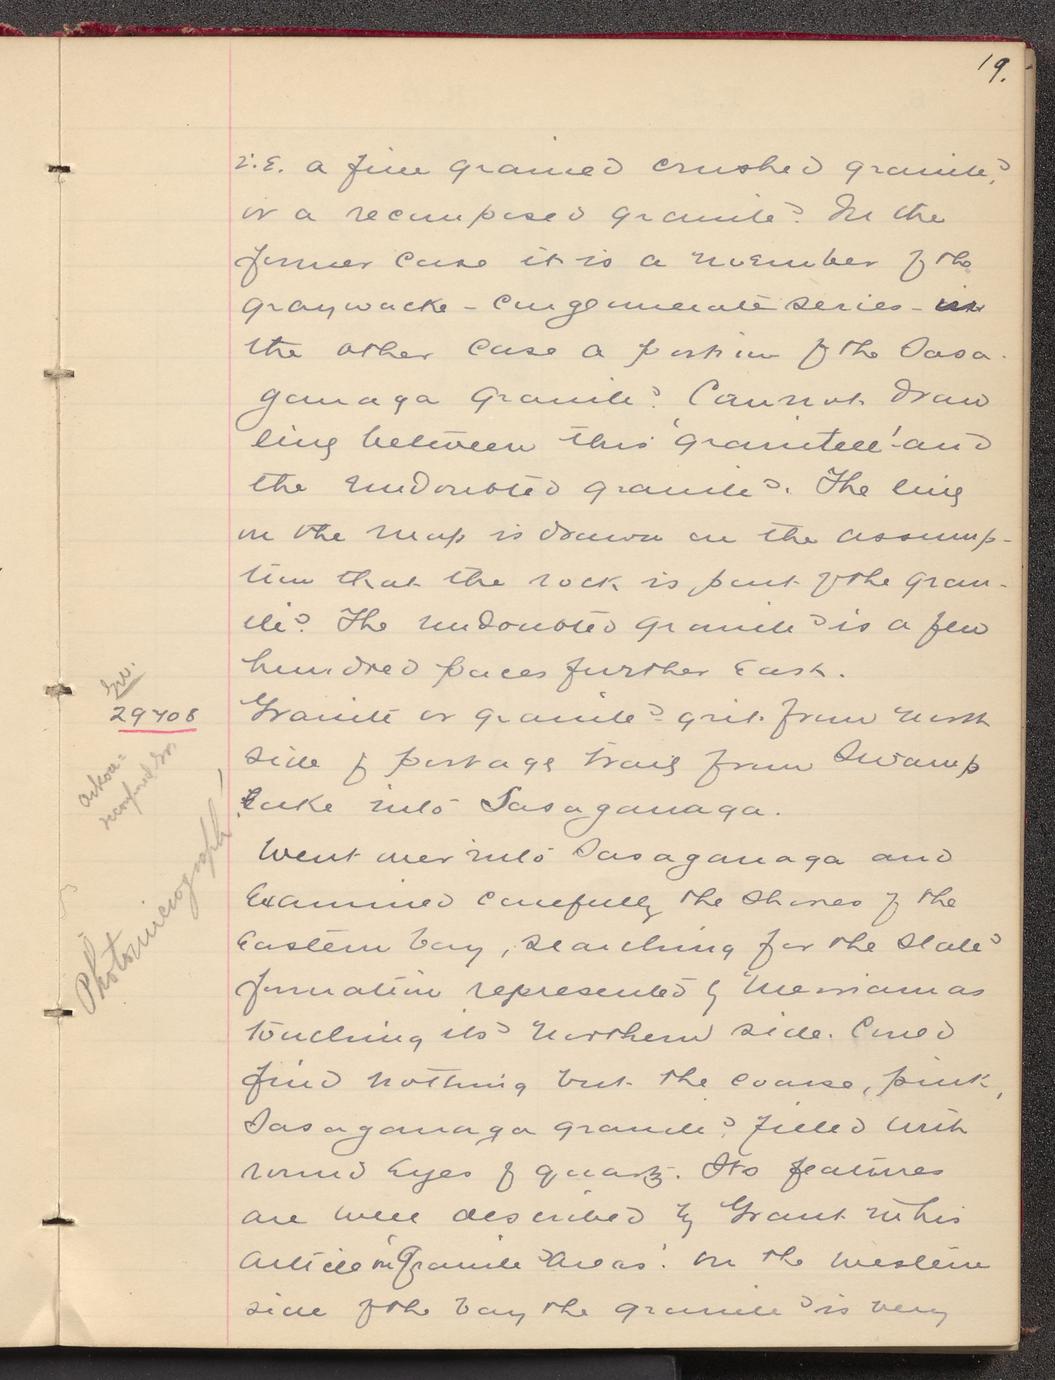 19.
i.e. a fine grained crushed granite,
or a recomposed granite? In the
former case it is a member of the
graywacke - conglomerate series - in
the other case a portion of the Sasa-
ganaga granite. Cannot draw
line between this 'granitell' and
the undoubted granite. The line
on the map is drawn on the assump-
tion that the rock is part of the gran-
ite. The undoubted granite is a few
hundred paces further East.
29708
Granite or granite-grit from North
side of portage trail from Swamp
Lake into Sasaganaga.
Photomicrograph!
Went over into Sasaganaga and
Examined carefully the shores of the
Eastern bay, searching for the slate
formation represented by Merriam as
touching its Northern side. Could
find nothing but the coarse, pink,
Sasaganaga granite, filled with
round Eyes of quartz. Its features
are well described by Grant in his
article on "Granite Areas". On the western
side of the bay the granite is very